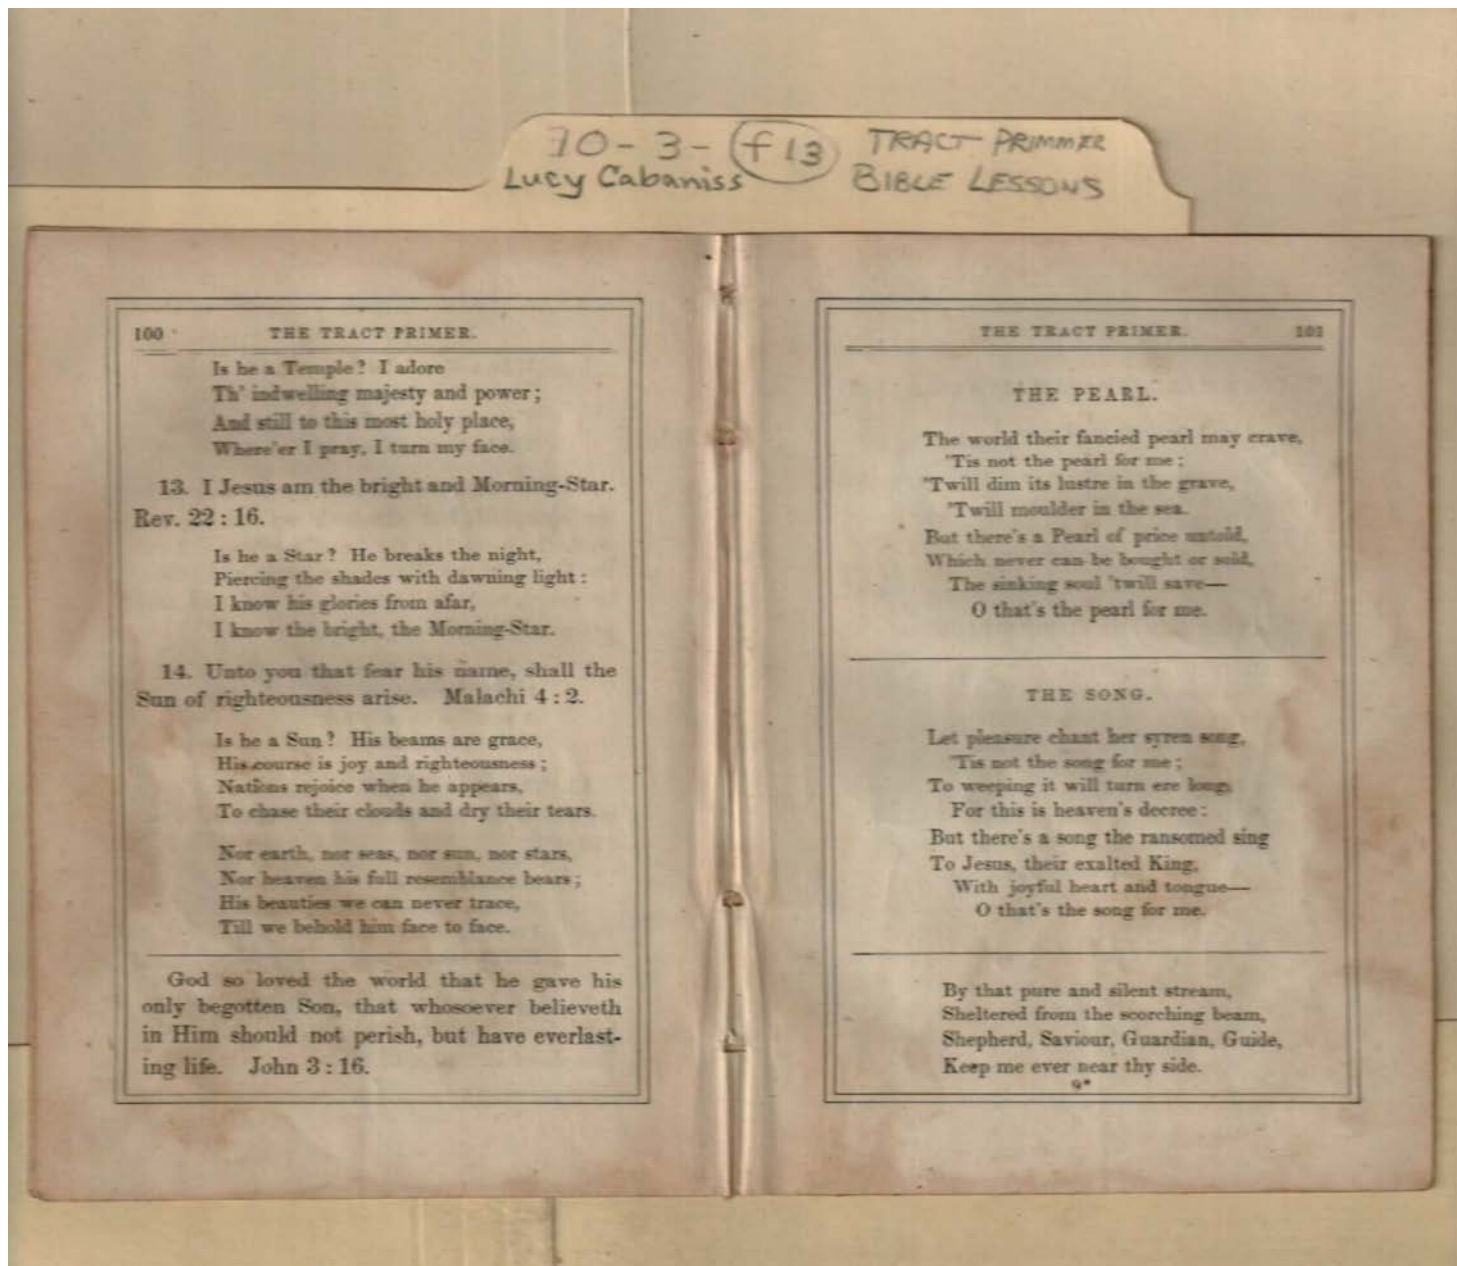 70-3-f13 TRACT PRIMMER
Lucy Cabaniss BIBLE LESSONS
100 THE TRACT PRIMER.
Is he a Temple? I adore
Th' indwelling majesty and power;
And still to this most holy place,
Where'er I pray, I turn my face.
13. I Jesus am the bright and Morning-Star.
Rev. 22:16.
Is he a Star? He breaks the night,
Piercing the shades with dawning light:
I know his glories from afar,
I know the bright, the Morning-Star.
14. Unto you that fear his name, shall the
Sun of righteousness arise. Malachi 4:2.
Is he a Sun? His beams are grace,
His course is joy and righteousness;
Nations rejoice when he appears,
To chase their clouds and dry their tears.
Nor earth, nor seas, nor sun, nor stars,
Nor heaven his full resemblance bears;
His beauties we can never trace,
Till we behold him face to face.
God so loved the world that he gave his
only begotten Son, that whosoever believeth
in Him should not perish, but have everlast-
ing life. John 3:16.
THE TRACT PRIMER. 101
THE PEARL.
The world their fancied pearl may crave,
'Tis not the pearl for me;
'Twill dim its lustre in the grave,
'Twill moulder in the sea.
But there's a Pearl of price untold,
Which never can be bought or sold,
The sinking soul 'twill save—
O that's the pearl for me.
THE SONG.
Let pleasure chant her syren song,
'Tis not the song for me;
To weeping it will turn ere long,
For this is heaven's decree:
But there's a song the ransomed sing
To Jesus, their exalted King,
With joyful heart and tongue—
O that's the song for me.
By that pure and silent stream,
Sheltered from the scorching beam,
Shepherd, Saviour, Guardian, Guide,
Keep me ever near thy side.
9*